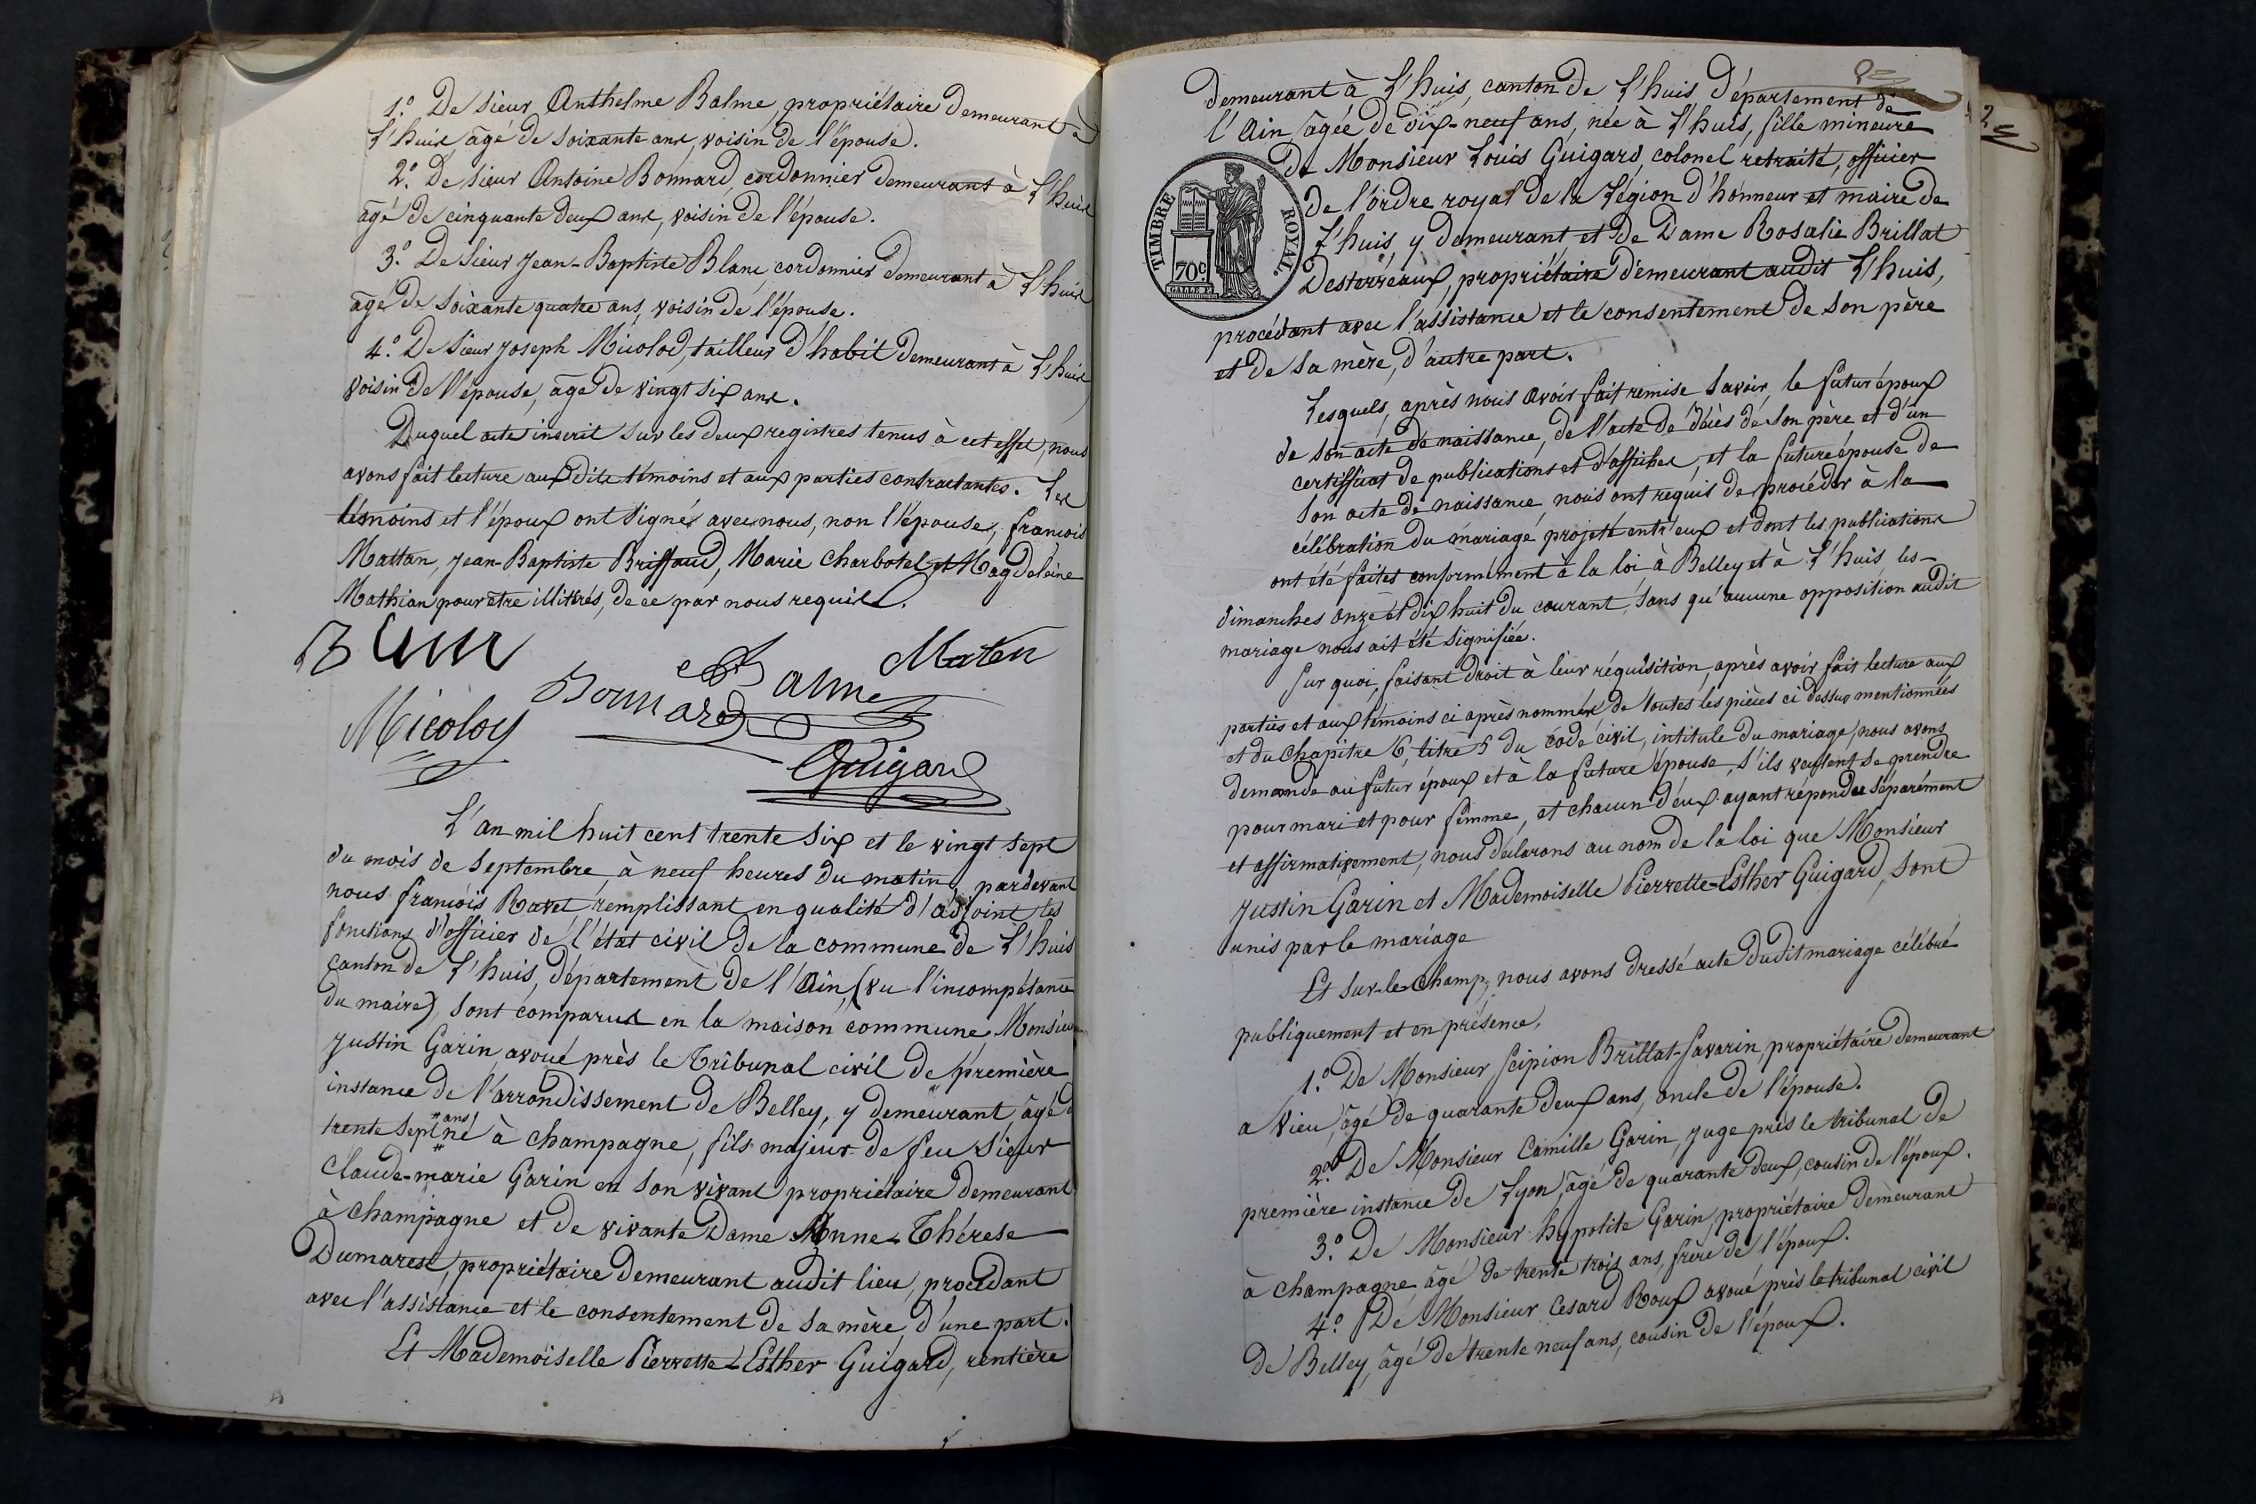 1.° De sieur Anthelme Balme, propriétaire demeurant à
L'huis âgé de soixante ans, voisin de l'épouse.
2.° De sieur Antoine Bonnard, cordonnier demeurant à L'huis
âgé de cinquante deux ans, voisin de l'épouse.
3.° De sieur Jean-Baptiste Blanc, cordonnier demeurant à L'huis
âgé de soixante quatre ans, voisin de l'épouse.
4.° De sieur Joseph Micolod, tailleur d'habit demeurant à L'huis
voisin de l'épouse, âgé de vingt six ans.
Duquel acte inscrit sur les deux registres tenus à cet effet, nous
avons fait lecture aux dits témoins et aux parties contractantes. Les
témoins et l'époux ont signés avec nous, non l'épouse, françois
Mattan, Jean-Baptiste Briffaud, Marie Charbotel et Magdeleine
Mathian pour être illitérés, de ce par nous requis.
Blanc
Balme
Maten
Bonnard
Micoloy
Guigard
L'an mil huit cent trente six et le vingt sept
du mois de septembre, à neuf heures du matin, pardevant
nous françois Ravet remplissant en qualité d'adjoint les
fonctions d'officier de l'état civil de la commune de L'huis
canton de L'huis, département de l'Ain, (vu l'incompétance
du maire), sont comparus en la maison commune, Monsieur
Justin Garin, avoué près le Tribunal civil de première
instance de l'arrondissement de Belley, y demeurant, âgé d
trente sept ans né à champagne, fils majeur de feu sieur
Claude-marie Garin en son vivant propriétaire demeurant
à Champagne et de vivante Dame Anne-Thérese
Dumarest, propriétaire demeurant audit lieu, procédant
avec l'assistance et le consentement de sa mère, d'une part.
Et Mademoiselle Pierrette-Esther Guigard, rentière
2
demeurant à L'huis, canton de L'huis département de
l'Ain, âgée de dix-neuf ans, née à L'huis, fille mineure
de Monsieur Louis Guigard, colonel retraité, officier
de l'ordre royal de la Légion d'honneur et maire de
L'huis, y demeurant et de Dame Rosalie Brillat
Desterréaux, propriétaire demeurant audit L'huis,
TIMBRE ROYAL.
70c
procédant avec l'assistance et le consentement de son père
et de sa mère, d'autre part.
Lesquels, après nous avoir fait remise savoir, le futur époux
de son acte de naissance, de l'acte de décès de son père et d'un
certifficat de publications et d'affiches, et la future épouse de
son acte de naissance, nous ont requis de procéder à la
célébration du mariage projeté entr'eux et dont les publications
ont été faites conformément à la loi à Belley et à L'huis, les
dimanches onze et dix huit du courant, sans qu'aucune opposition audit
mariage nous ait été signifiée.
Sur quoi, faisant droit à leur réquisition, après avoir fait lecture aux
parties et aux témoins ci après nommés de toutes les pièces ci dessus mentionnées
et du chapitre 6, titre 5 du code civil, intitulé du mariage, nous avons
demandé au futur époux et à la future épouse, s'ils veulent se prendre
pour mari et pour femme, et chacun d'eux ayant répondu séparément
et affirmativement, nous déclarons au nom de la loi que Monsieur
Justin Garin et Mademoiselle Pierrette-Esther Guigard, sont
unis par le mariage
Et sur-le-champ, nous avons dressé acte dudit mariage célébré
publiquement et en présence,
1.° De Monsieur Scipion Brillat-Savarin, propriétaire demeurant
a Vieu, âgé de quarante deux ans, oncle de l'épouse.
2.° De Monsieur Camille Garin, Juge près le tribunal de
première instance de Lyon, âgé de quarante deux, cousin de l'époux.
3.° De Monsieur hypolite Garin, propriétaire demeurant
à champagne âgé de trente trois ans, frère de l'époux.
4.° De Monsieur Cesard Roux avoué près le tribunal civil
de Belley, âgé de trente neuf ans, cousin de l'époux.